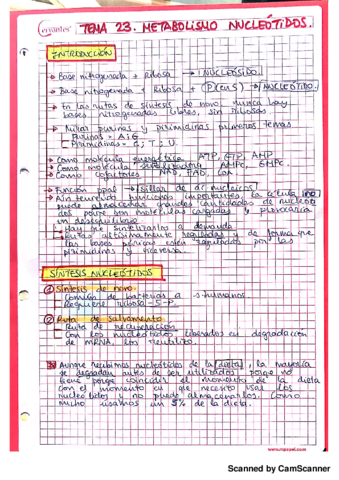 Cervantes TEMA 23. METABOLISMO NUCLEÓTIDOS.
INTRODUCCIÓN
→ Base nitrogenada + Ribosa → NUCLEÓSIDO.
→ Base nitrogenada + Ribosa + P(en 5') → NUCLEÓTIDO.
→ En las rutas de síntesis de novo nunca hay
bases nitrogenadas libres, sin ribosas
→ Mirar purinas y pirimidinas primeros temas
Purinas = A; G
Pirimidinas = C; T; U.
→ Como molécula energética ATP, GTP, AMP
→ Como molécula AMPc, GMPc.
→ Como cofactores NAD, FAD, CoA.
→ Función ppal → sillar de ác. nucleicos
→ Aún teniendo funciones importantes, la célula no
puede almacenar grandes cantidades de nucleóti
dos porque son moléculas cargadas y provocaría
un desequilibrio
- Hay que sintetizarlos a demanda
- Rutas altamente reguladas y de forma que
las bases púricas estén reguladas por las
pirimidinas y viceversa.
SÍNTESIS NUCLEÓTIDOS
① Síntesis de novo.
- Común de bacterias a s. humanos.
- Requiere ribosa-5-P.
② Ruta de salvamento
- Ruta de recuperación
- Con los nucleótidos liberados en degradación
de mRNA, los reutilizo.
Aunque recibimos nucleótidos de la dieta, la mayoría
se degradan antes de ser utilizados porque no
tiene porqué coincidir el momento de la dieta
con el momento en que necesito usar los
nucleótidos y no puedo almacenarlos. Como
mucho usamos un 5% de la dieta.
www.mpapel.com
Scanned by CamScanner